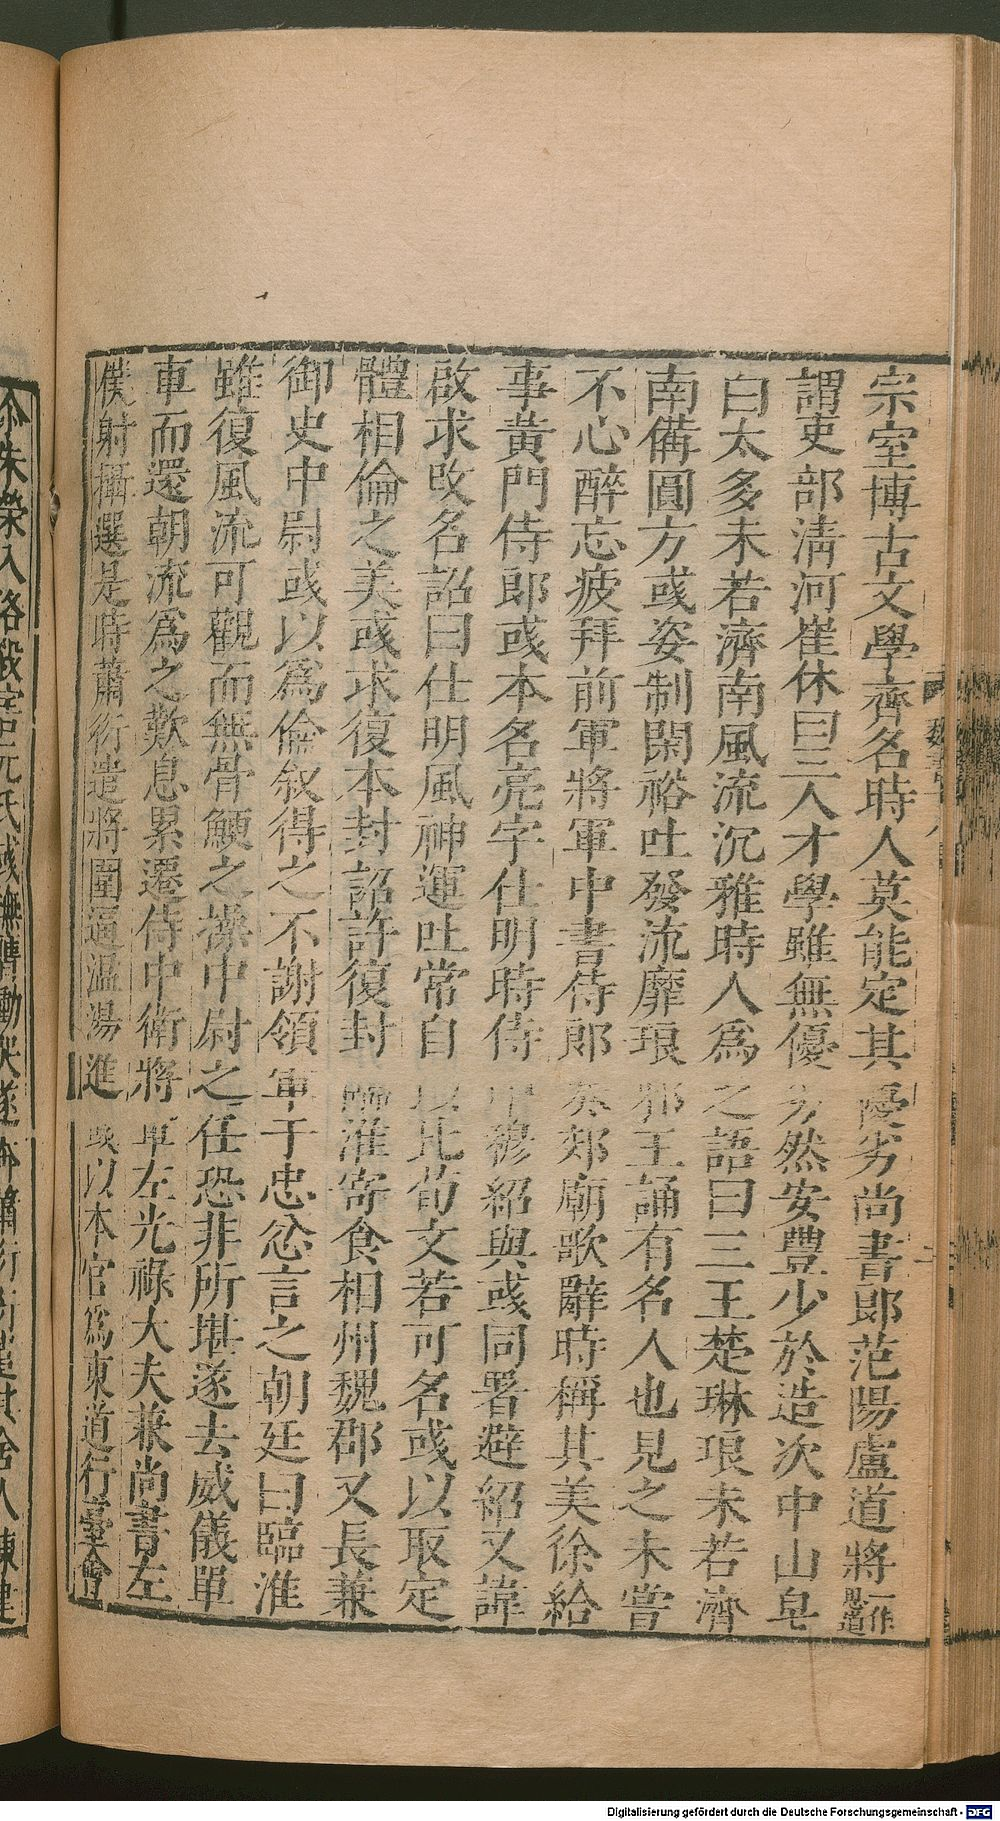 宗室博古文學齊名時人莫能定其優劣尚書郎范陽盧道將一作思道
謂吏部清河崔休曰三人才學雖無優劣然安豐少於造次中山皂
白太多未若濟南風流沉雅時人爲之語曰三王楚琳琅未若濟
南備圓方或姿制閑裕吐發流靡琅邪王誦有名人也見之未嘗
不心醉忘疲拜前軍將軍中書侍郎奏郊廟歌辭時稱其美徐給
事黃門侍郎彧本名亮字仕明時侍中穆紹與彧同署避紹又諱
啟求改名詔曰仕明風神運吐常自以比荀文若可名彧以取定
體相倫之美彧求復本封詔許復封臨淮寄食相州魏郡又長兼
御史中尉彧以爲倫敘得之不謝領軍于忠忿言之朝廷曰臨淮
雖復風流可觀而無骨鯁之操中尉之任恐非所堪遂去威儀單
車而還朝流爲之歎息累遷侍中衛將軍左光祿大夫兼尚書左
僕射攝選是時蕭衍遣將圍逼溫湯進彧以本官爲東道行臺會
尒朱榮入洛殺害元氏彧撫膺慟哭遂奔蕭衍
Digitalisierung gefördert durch die Deutsche Forschungsgemeinschaft - DFG